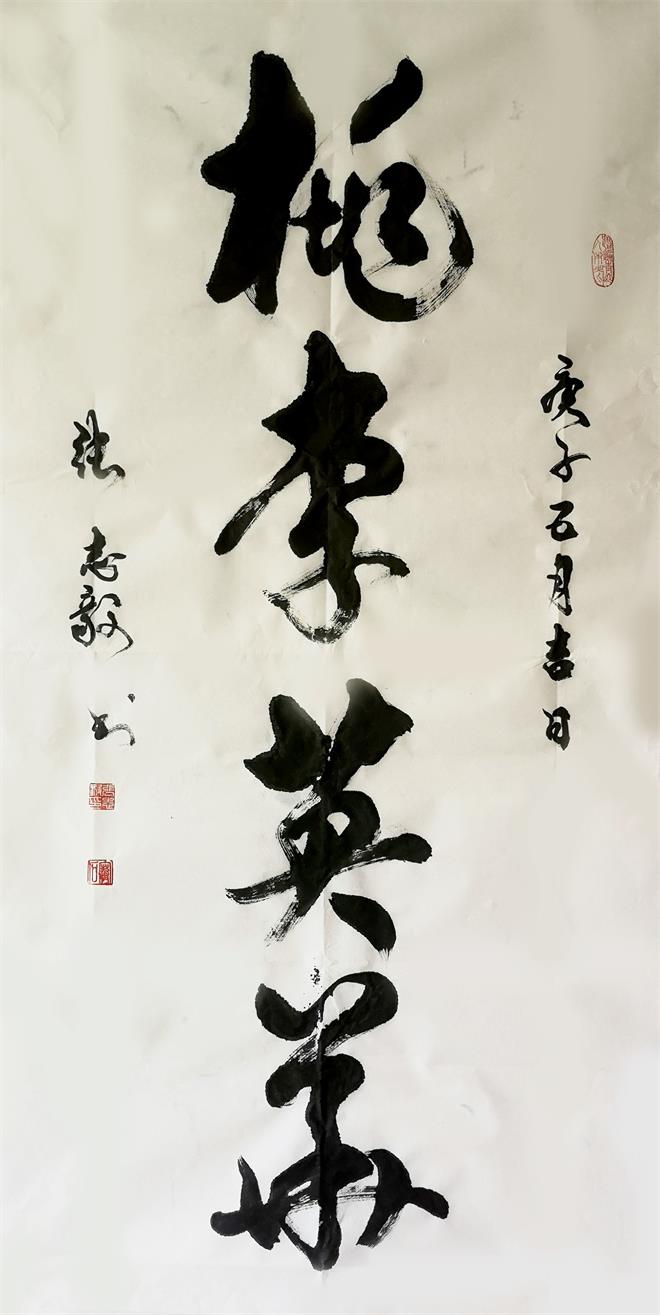 庚子五月吉日
桃李英华
张志毅书